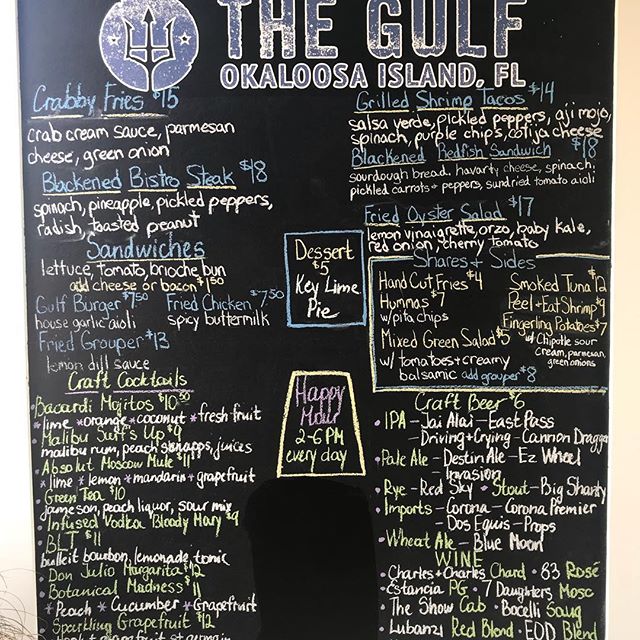 THE GULF
OKALOOSA ISLAND, FL
Crabby Fries $15
crab cream sauce, parmesan
cheese, green onion
Blackened Bistro Steak $18
spinach, pineapple, pickled peppers,
radish, toasted peanut
Sandwiches
lettuce, tomato, brioche bun
add cheese or bacon $1.50
Gulf Burger $7.50
house garlic aioli
Fried Chicken $7.50
spicy buttermilk
Fried Grouper $13
lemon dill sauce
Craft Cocktails
• Bacardi Mojitos $10.50
* lime * orange * coconut * fresh fruit
• Malibu Surf's Up $9
malibu rum, peach schnapps, juices
• Absolut Moscow Mule $11
* lime * lemon * mandarin * grapefruit
• Green Tea $10
jameson, peach liquor, sour mix
• Infused Vodka Bloody Mary $9
• BLT $11
bulleit bourbon, lemonade, tonic
• Don Julio Margarita $12
• Botanical Madness $11
* Peach * Cucumber * Grapefruit
• Sparkling Grapefruit $12
grapefruit, st germain
Dessert
$5
Key Lime
Pie
Happy
Hour
2-6 PM
every day
Grilled Shrimp Tacos $14
salsa verde, pickled peppers, aji mojo,
spinach, purple chips, cotija cheese
Blackened Redfish Sandwich $18
sourdough bread, havarty cheese, spinach,
pickled carrots + peppers, sundried tomato aioli
Fried Oyster Salad $17
lemon vinaigrette, orzo, baby kale,
red onion, cherry tomato
Shares + Sides
Hand Cut Fries $4
Hummas $7
w/ pita chips
Mixed Green Salad $5
w/ tomatoes + creamy
balsamic add grouper $8
Smoked Tuna $12
Peel + Eat Shrimp $9
Fingerling Potatoes $7
w/ Chipotle sour
cream, parmesan,
green onions
Craft Beer $6
• IPA - Jai Alai - East Pass
- Driving + Crying - Cannon Dragger
• Pale Ale - Destin Ale - Ez Wheel
- Invasion
• Rye - Red Sky • Stout - Big Shanty
• Imports - Corona - Corona Premier
- Dos Equis - Props
• Wheat Ale - Blue Moon
WINE
• Charles + Charles Chard • 83 Rosé
• Estancia PG • 7 Daughters Mosc
• The Show Cab • Bocelli Saug
• Lubanzi Red Blend • EDD Blend